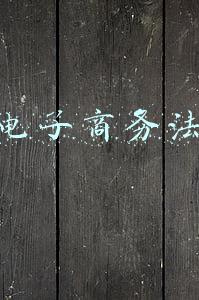 电子商务法